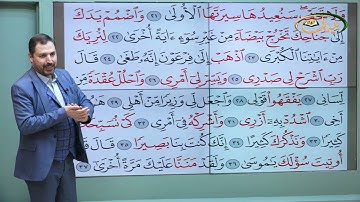 سَنُعِيدُهَا سِيرَتَهَا ٱلْأُولَىٰ ٢١ وَٱضْمُمْ يَدَكَ
إِلَىٰ جَنَاحِكَ تَخْرُجْ بَيْضَآءَ مِنْ غَيْرِ سُوٓءٍ ءَايَةً أُخْرَىٰ ٢٢ لِنُرِيَكَ
مِنْ ءَايَٰتِنَا ٱلْكُبْرَى ٢٣ ٱذْهَبْ إِلَىٰ فِرْعَوْنَ إِنَّهُۥ طَغَىٰ ٢٤ قَالَ
رَبِّ ٱشْرَحْ لِى صَدْرِى ٢٥ وَيَسِّرْ لِىٓ أَمْرِى ٢٦ وَٱحْلُلْ عُقْدَةً مِّن
لِّسَانِى ٢٧ يَفْقَهُوا۟ قَوْلِى ٢٨ وَٱجْعَل لِّى وَزِيرًا مِّنْ أَهْلِى ٢٩
أَخِى ٣٠ ٱشْدُدْ بِهِۦٓ أَزْرِى ٣١ وَأَشْرِكْهُ فِىٓ أَمْرِى ٣٢ كَىْ نُسَبِّحَكَ
كَثِيرًا ٣٣ وَنَذْكُرَكَ كَثِيرًا ٣٤ إِنَّكَ كُنتَ بِنَا بَصِيرًا ٣٥ قَالَ قَدْ
أُوتِيتَ سُؤْلَكَ يَٰمُوسَىٰ ٣٦ وَلَقَدْ مَنَنَّا عَلَيْكَ مَرَّةً أُخْرَىٰٓ ٣٧